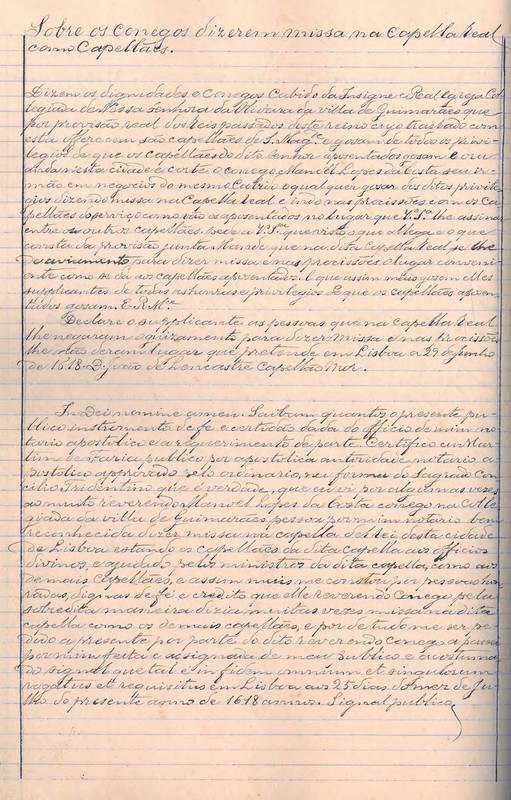 Sobre os conegos dizerem missa na capella Real
como Capellães.
Dizem os dignidades e Conegos Cabido da Insigne e Real egreja Col
legiada de Nossa Senhora da Oliveira da villa de Guimarães que
por provisão real dos Reis passados deste reino cujo traslado com
esta offerecem são capellães de S. Mag.de e gosam de todos os privi-
legios de que os capellães do dito Senhor aposentados gosam e ora
anda nesta cidade e corte o conego Manoel Lopes da Costa seu ir
mão em negocios do mesmo Cabido o qual quer gosar dos ditos privile
gios dizendo missa na Capella Real e indo nas procissões com os ca
pellães do serviço como vão os aposentados no lugar que V. S.ria lhe assinar
entre os outros capellães, pede a V. S.ria que visto o que allega e o que
consta da provisão junta Mande que na dita Capella Real se lhe
de aviamento para dizer missa e nas procissões o lugar conveni
ente como se da aos capellães aposentado. E que assim mais gosem elles
supplicantes de todas as honras e privilegios de que os capellães apoen
tados gosam. E. R. M.ce
Declare o supplicante as pessoas que na capella Real
lhe negaram o guizamento para dizer missa e nas procissões
lhe não deram lugar que pretende em Lisboa a 27 de Junho
de 1618. D. João de Lencastre Capellão Mor.
In Dei nomine amen. Saibam quantos o presente pu-
blico instromento de fe e certidão dada do officio de mim no
tario apostolico e a requerimento de parte. Certifico eu Mar
tim de Faria publico por apostolica autoridade notario a-
postolico approvado pelo ordinario, na forma do Sagrado Con
cilio Tridentino que é verdade, que eu vi por algumas vezes
ao muito reverendo Manoel Lopes da Costa conego na Colle
giada da villa de Guimarães pessoa por mim notario bem
reconhecida dizer missa na capella del Rei desta cidade
de Lisboa estando os capellães da dita capella aos officios
divinos, e ajudado pelos ministros da dita capella, como aos
demais Capellães, e assim mais me constou por pessoas hon
radas, dignas de fé e credito que elle reverendo Conego pela
sobredita maneira dizia muitas vezes missa na dita
capella como os demais capellães, e por de tudo me ser pe
dido a presente por parte do dito reverendo conego a passei
por mim feita e assignada de meu publico e acostuma
do signal que tal é in fidem omnium et singulorum
rogatus et requisitus em Lisboa aos 25 dias do mez de Ju
lho do presente anno de 1618 annos. Signal publico